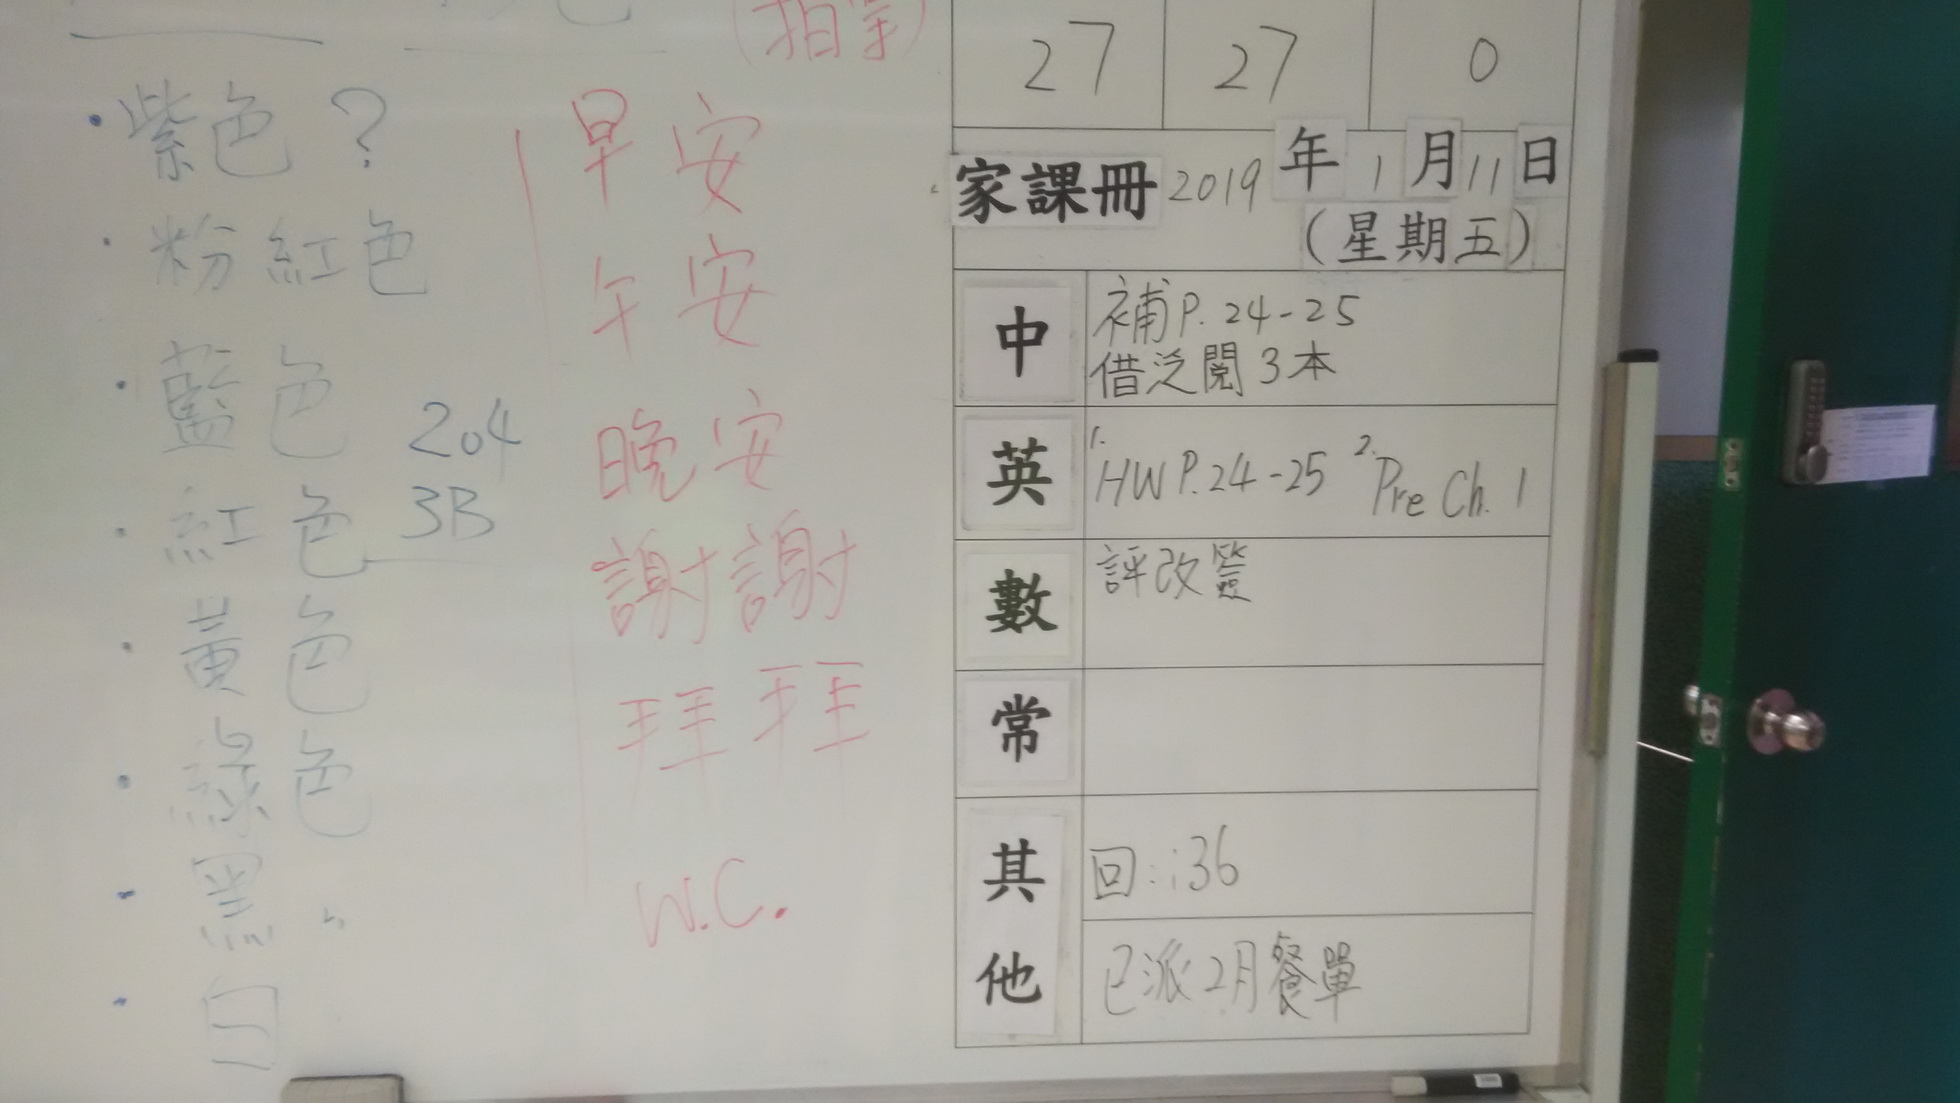 (拍掌)
紫色?
粉紅色
藍色
204
紅色
3B
黃色
綠色
黑 "
早安
午安
晚安
謝謝
拜拜
W.C.
27 27 0
家課冊 2019年1月11日
(星期五)
中 補P.24-25
借泛閱3本
英 1. HW P.24-25 2. Pre Ch. 1
數 評改簽
常
其他 回:136
已派2月餐單